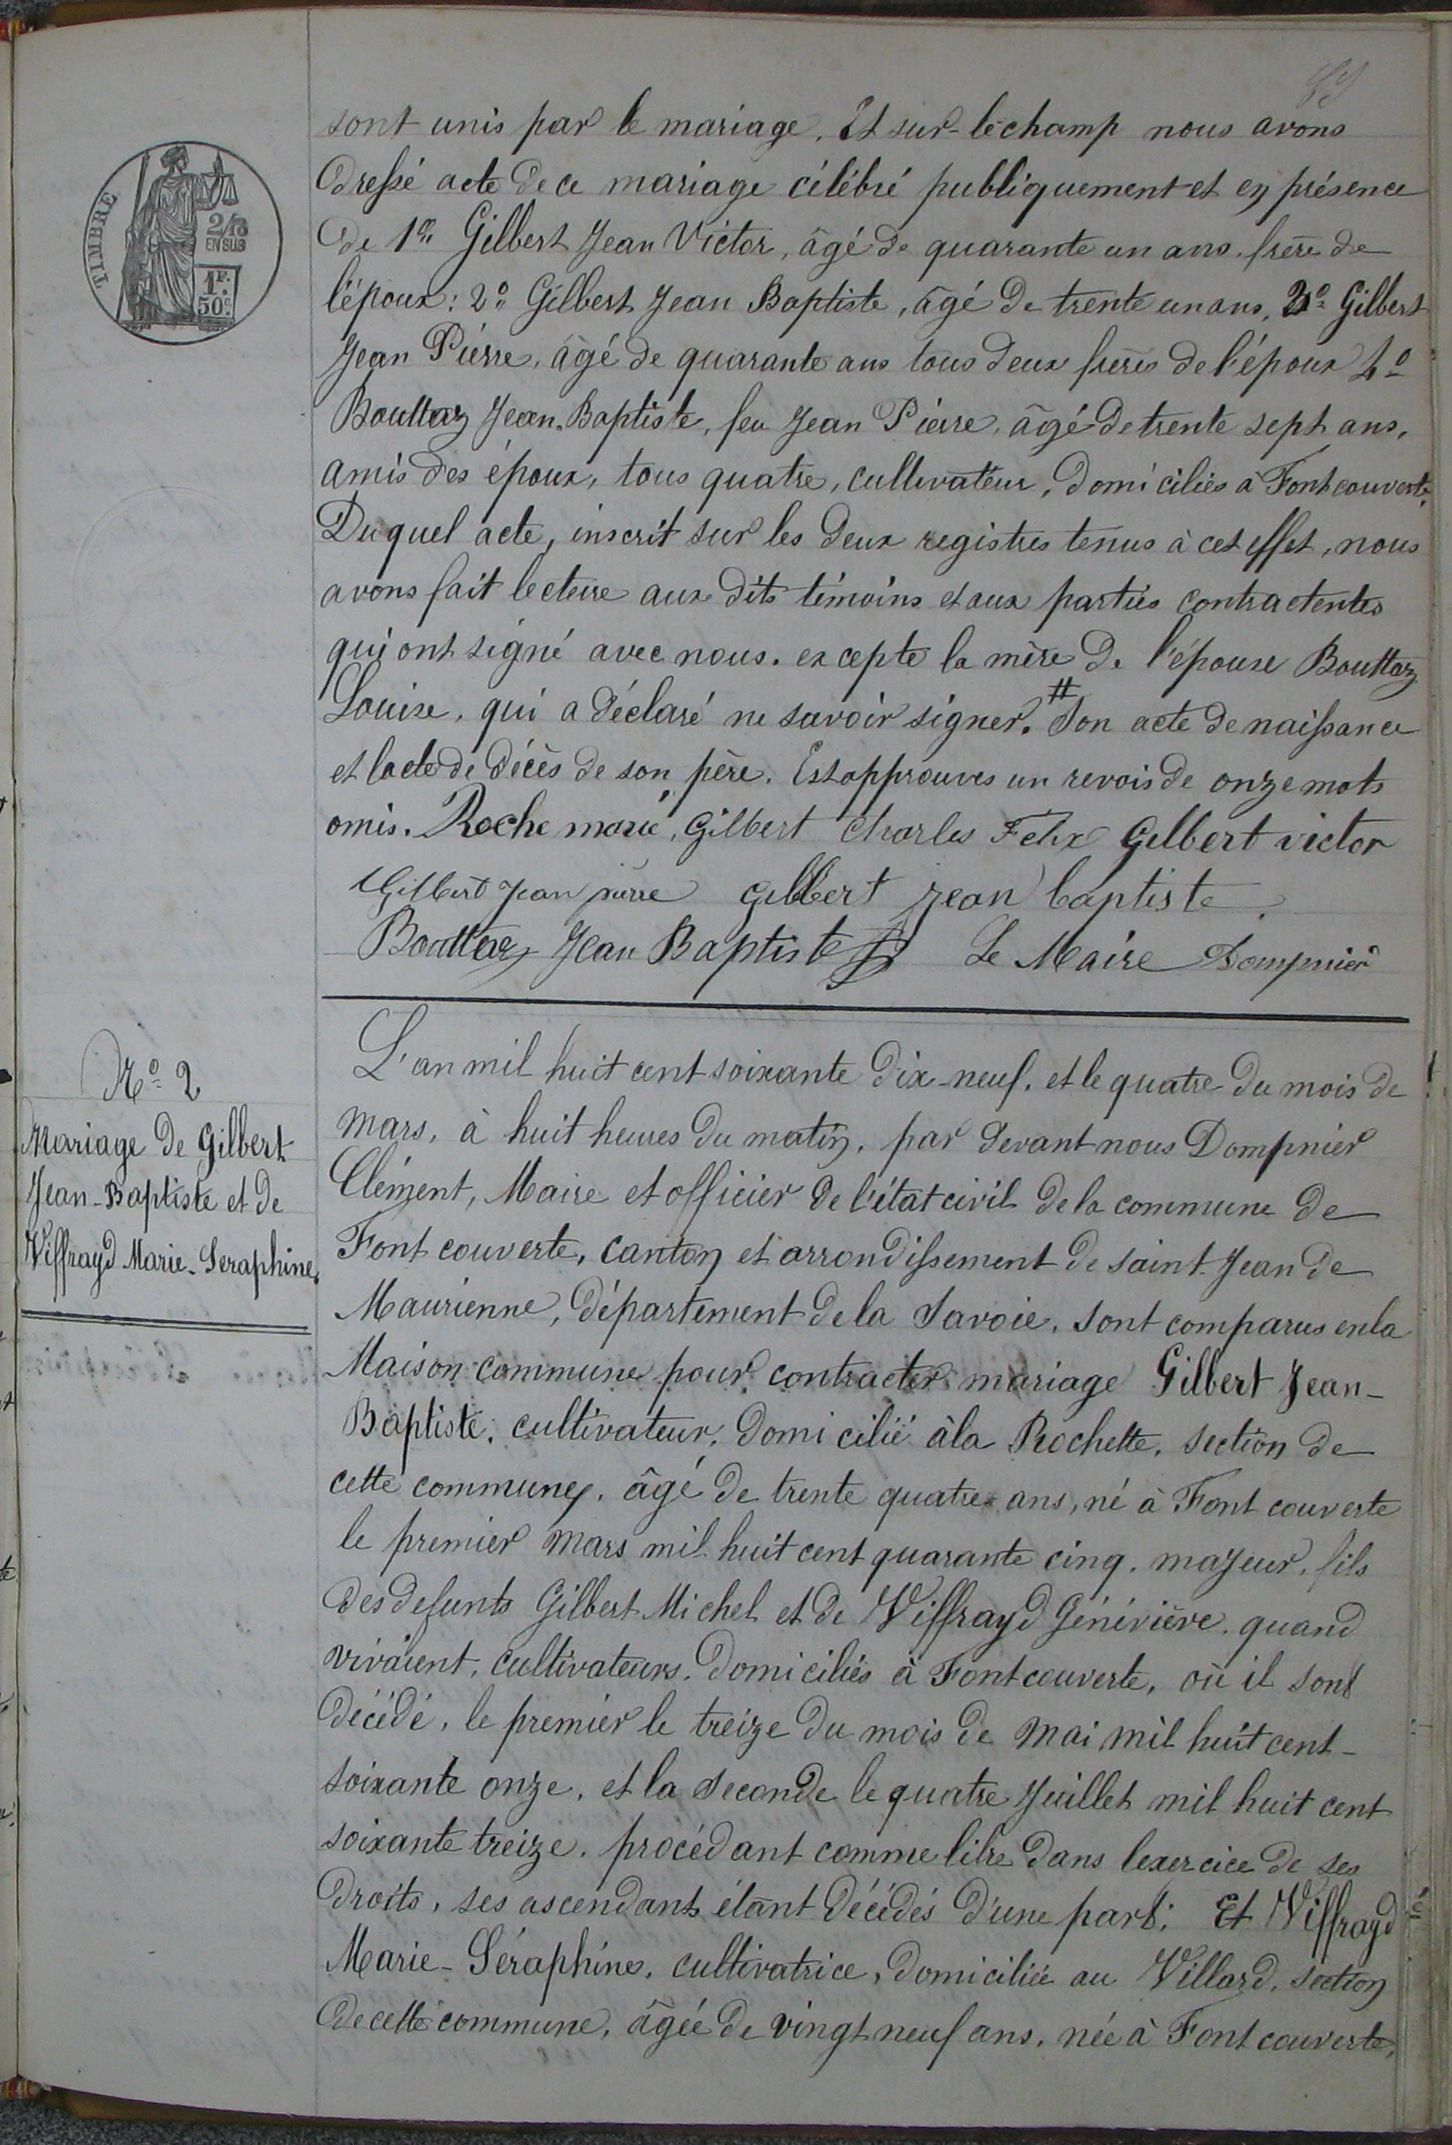 sont unis par le mariage. Et sur-le champ nous avons
dressé acte de ce mariage célébré publiquement et en présence
de 1er Gilbert Jean Victor, âgé de quarante un ans, frère de
l'époux: 2° Gilbert Jean Baptiste, âgé de trente un ans, 3° Gilbert
Jean Pierre, âgé de quarante ans tous deux frères de l'époux 4°
Bouttaz Jean-Baptiste, feu Jean Pierre, âgé de trente sept ans,
amis des époux, tous quatre, cultivateur, domiciliés à Fontcouverte.
Duquel acte, inscrit sur les deux registres tenus à cet effet, nous
avons fait lecture aux dits témoins et aux parties contractentes
qui ont signé avec nous. excepte la mère de l'épouse Bouttaz
Louise, qui a déclaré ne savoir signer. # Son acte de naissance
et lacte de décès de son père. Est approuves un revois de onze mots
omis. Roche marie, Gilbert Charles Felix Gilbert victor
Gilbert Jean pierre Gilbert jean baptiste.
Bouttaz Jean Baptiste Le Maire Dompnier
N° 2
Mariage de Gilbert
Jean-Baptiste et de
Viffrayd Marie-Seraphine.
L'an mil huit cent soixante dix-neuf, et le quatre du mois de
mars, à huit heures du matin, par devant nous Dompnier
Clément, Maire et officier de l'état civil de la commune de
Font couverte, canton et arrondissement de saint-Jean de
Maurienne, département de la Savoie, sont comparus en la
Maison commune pour contracter mariage Gilbert Jean-
Baptiste, cultivateur, domicilié à la Rochette, section de
cette commune, âgé de trente quatre ans, né à Font couverte
le premier mars mil huit cent quarante cinq, majeur, fils
des defunts Gilbert Michel et de Viffrayd Généviève, quand
vivaient, cultivateurs, domiciliés à Fontcouverte, où il sont
décédé, le premier le treize du mois de mai mil huit cent-
soixante onze, et la seconde le quatre Juillet mil huit cent
soixante treize. procédant comme libre dans lexercice de ses
droits, ses ascendants étant décédés d'une part; Et Viffrayd
Marie-Séraphine, cultivatrice, domiciliée au Villard, section
de cette commune, âgée de vingt neuf ans, née à Font couverte,
TIMBRE
2/10
EN SUS
1F.
50c.